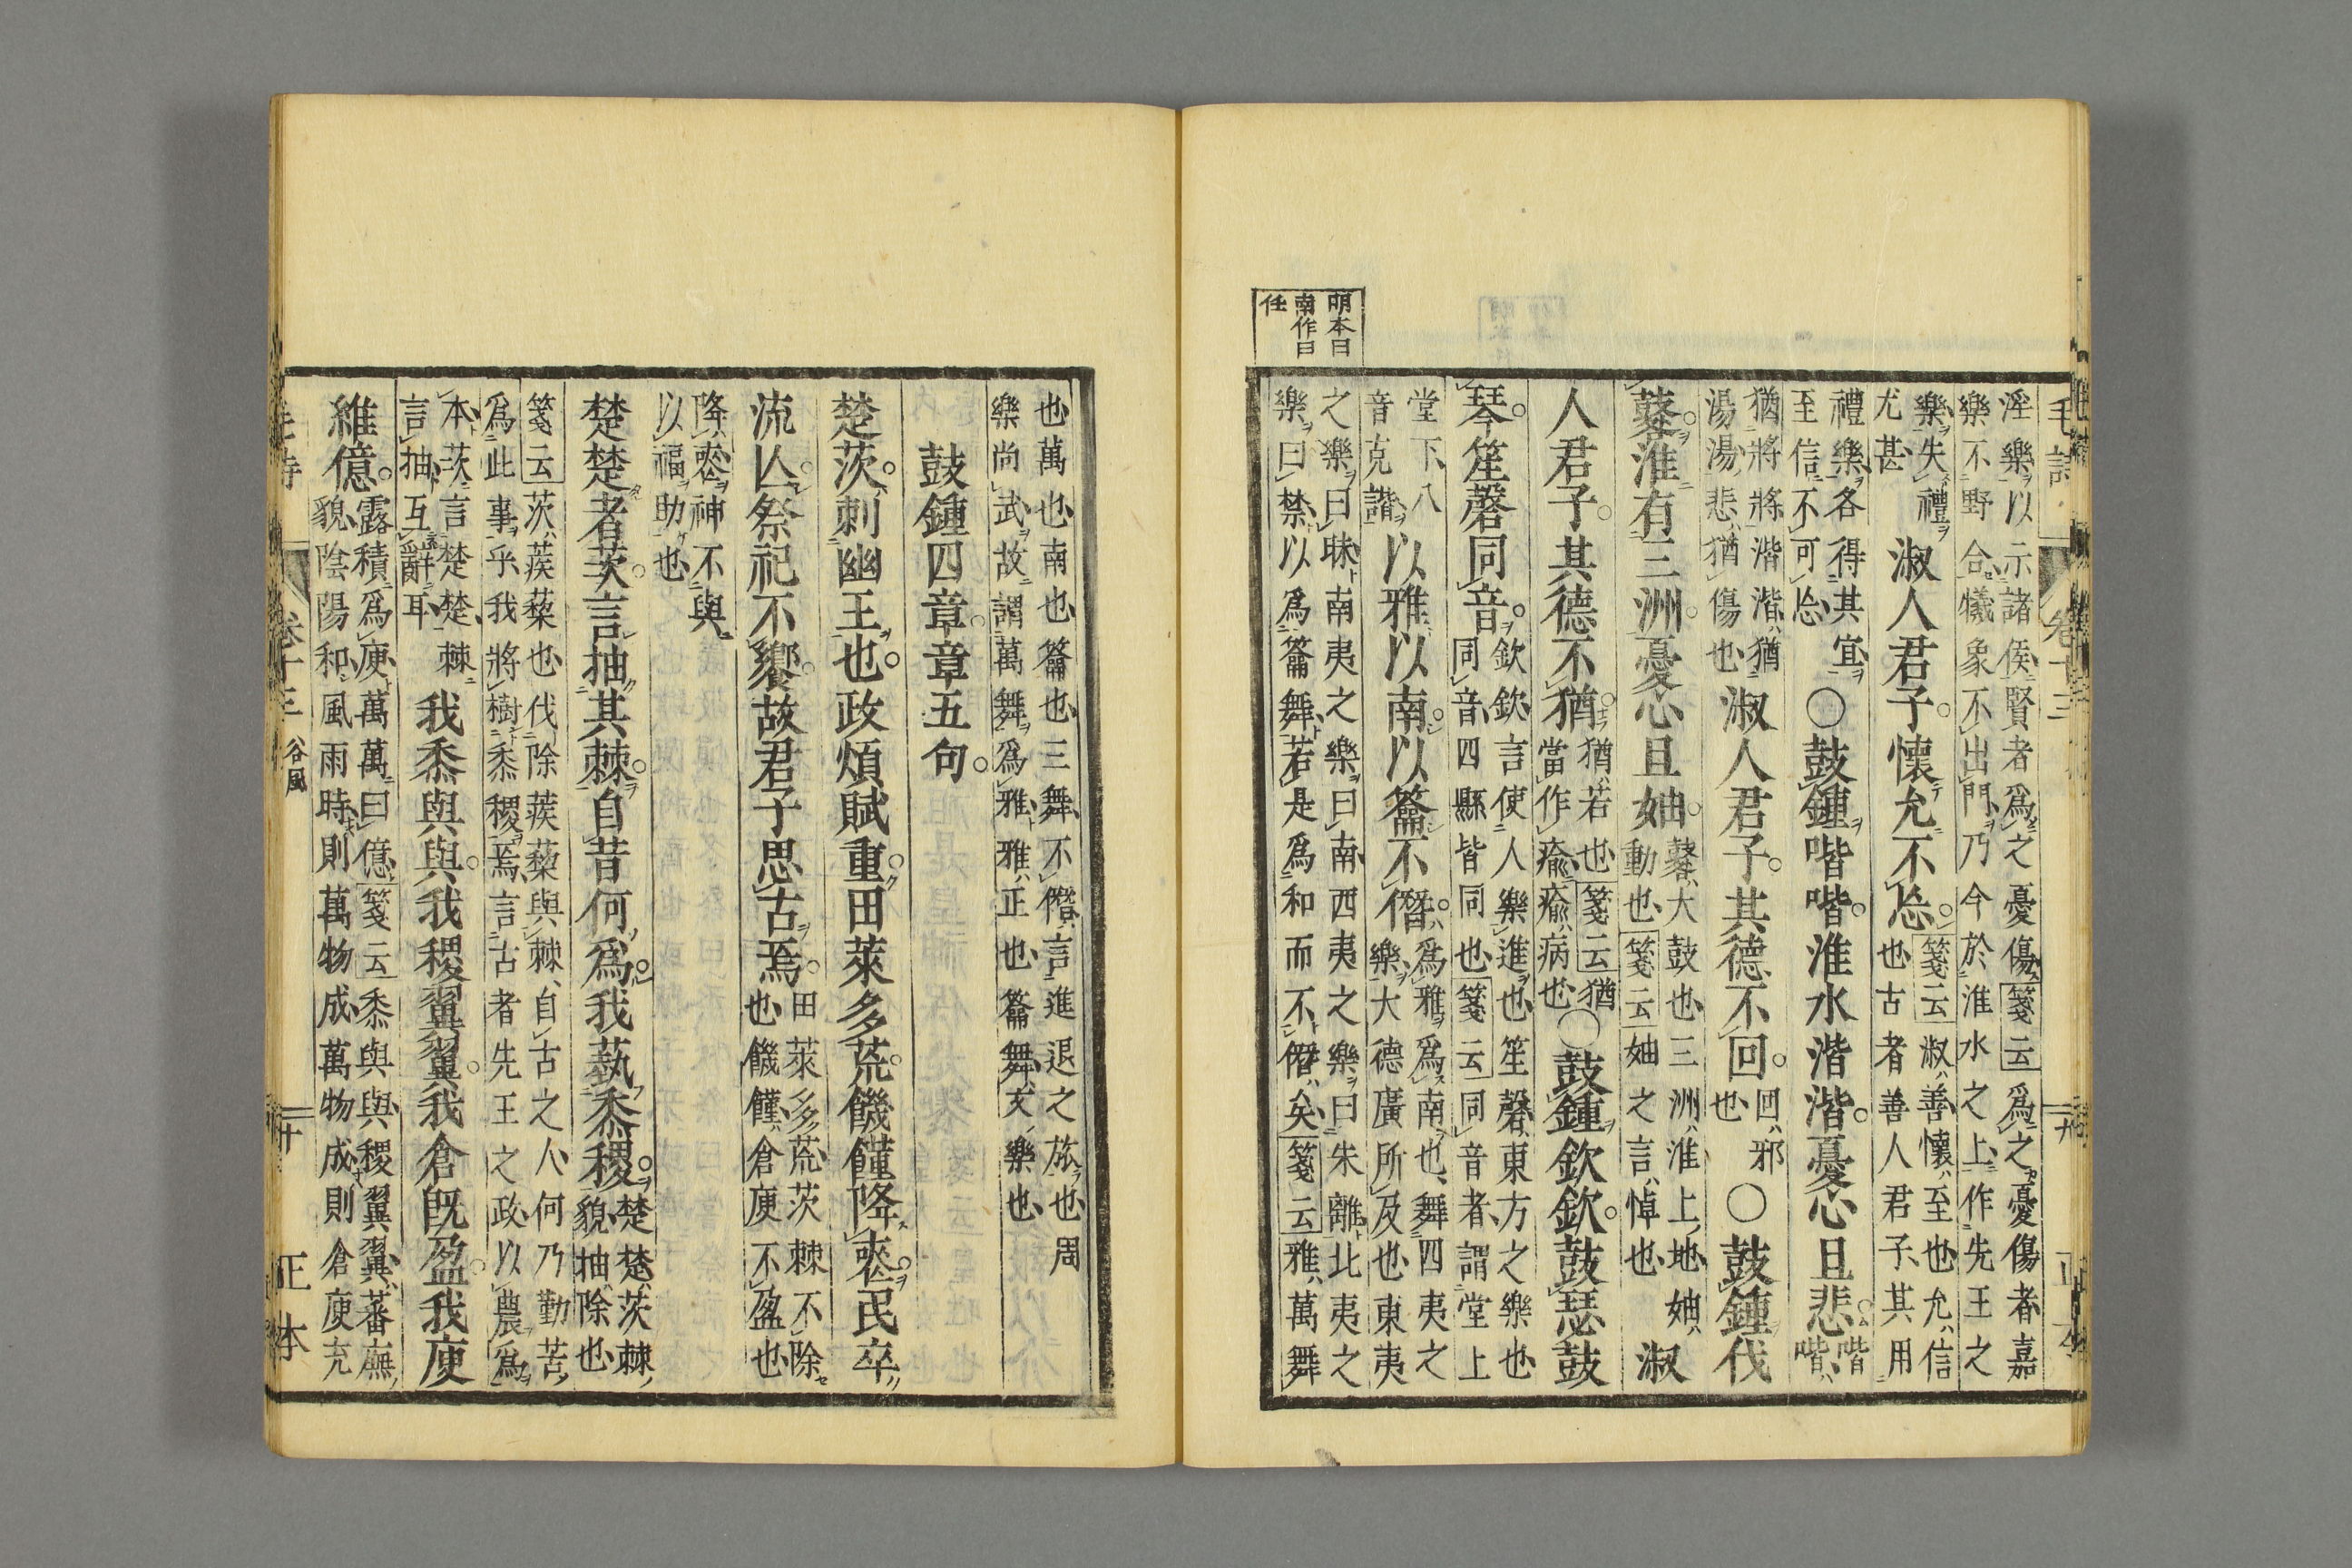 明本曰
南作曰
任
毛詩
淫樂以示諸侯賢者爲之憂傷箋云爲之憂傷者嘉
樂不野合犧象不出門乃今於淮水之上作先王之
樂失禮
尤甚
淑人君子懷允不忘
箋云淑善懷至也允信
也古者善人君子其用
禮樂各得其宜
至信不可忘
○鼓鍾喈喈淮水湝湝憂心且悲
喈喈
猶將將湝湝猶
湯湯悲猶傷也
淑人君子其德不回
回邪
也
○鼓鍾伐
鼛淮有三洲憂心且妯
鼛大鼓也三洲淮上地妯
動也箋云妯之言悼也
淑
人君子其德不猶
猶若也箋云猶
當作瘉瘉病也
○鼓鍾欽欽鼓瑟鼓
琴笙磬同音
欽欽言使人樂進也笙磬東方之樂也
同音四縣皆同也箋云同音者謂堂上
堂下八
音克諧
以雅以南以籥不僭
爲雅爲南也舞四夷之
樂大德廣所及也東夷
之樂曰昧南夷之樂曰南西夷之樂曰朱離北夷之
樂曰禁以爲籥舞若是爲和而不僭矣箋云雅萬舞
也萬也南也籥也三舞不僭言進退之旅也周
樂尚武故謂萬舞爲雅雅正也籥舞文樂也
鼓鍾四章章五句
楚茨刺幽王也政煩賦重田萊多荒饑饉降喪民卒
流亾祭祀不饗故君子思古焉
田萊多荒茨棘不除
也饑饉倉庾不盈也
降喪神不與
以福助也
楚楚者茨言抽其棘自昔何爲我蓺黍稷
楚楚茨棘
貌抽除也
箋云茨蒺蔾也伐除蒺蔾與棘自古之人何乃勤苦
爲此事乎我將樹黍稷焉言古者先王之政以農爲
本茨言楚楚棘
言抽互辭耳
我黍與與我稷翼翼我倉既盈我庾
維億
露積爲庾萬萬曰億箋云黍與與稷翼翼蕃廡
貌陰陽和風雨時則萬物成萬物成則倉庾充
卷十三
谷風
二十
正本